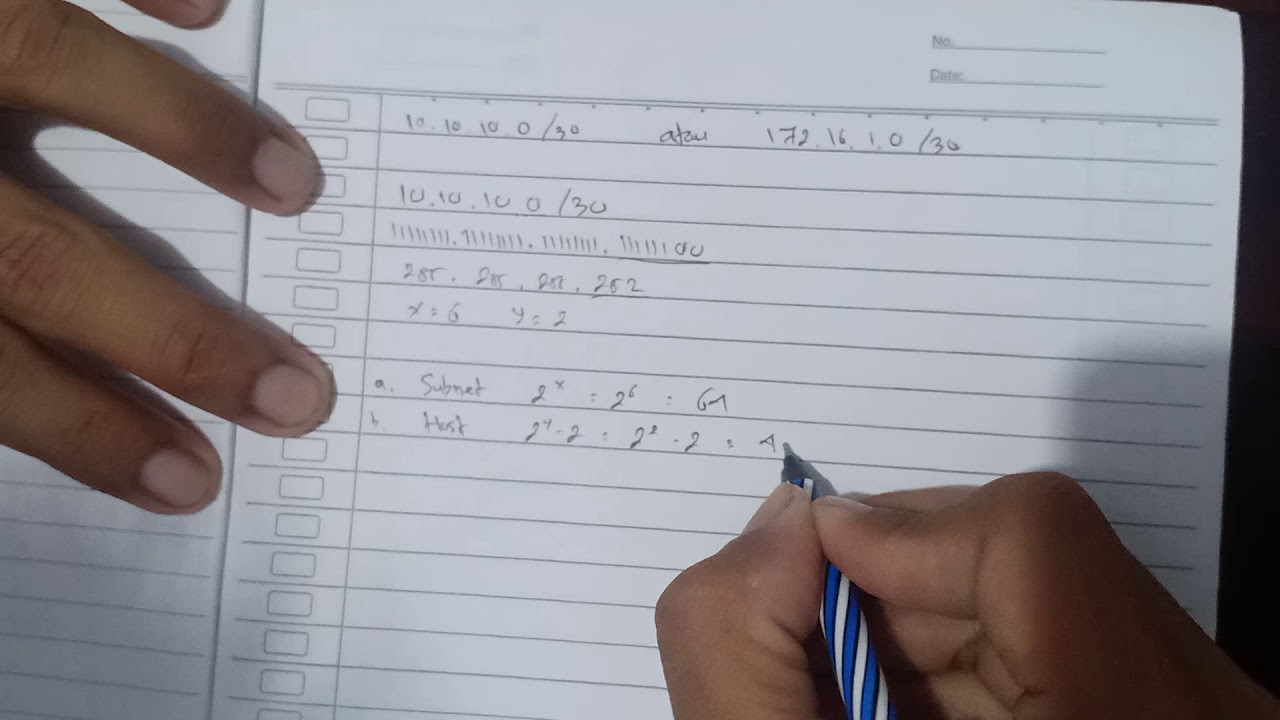 No.
Date:
10.10.10.0/30 atau 172.16.1.0/30
10.10.10.0/30
11111111.11111111.11111111.11111100
255.255.255.252
x=6 y=2
a. Subnet 2^x = 2^6 = 64
b. Host 2^y-2 = 2^2-2 = 4